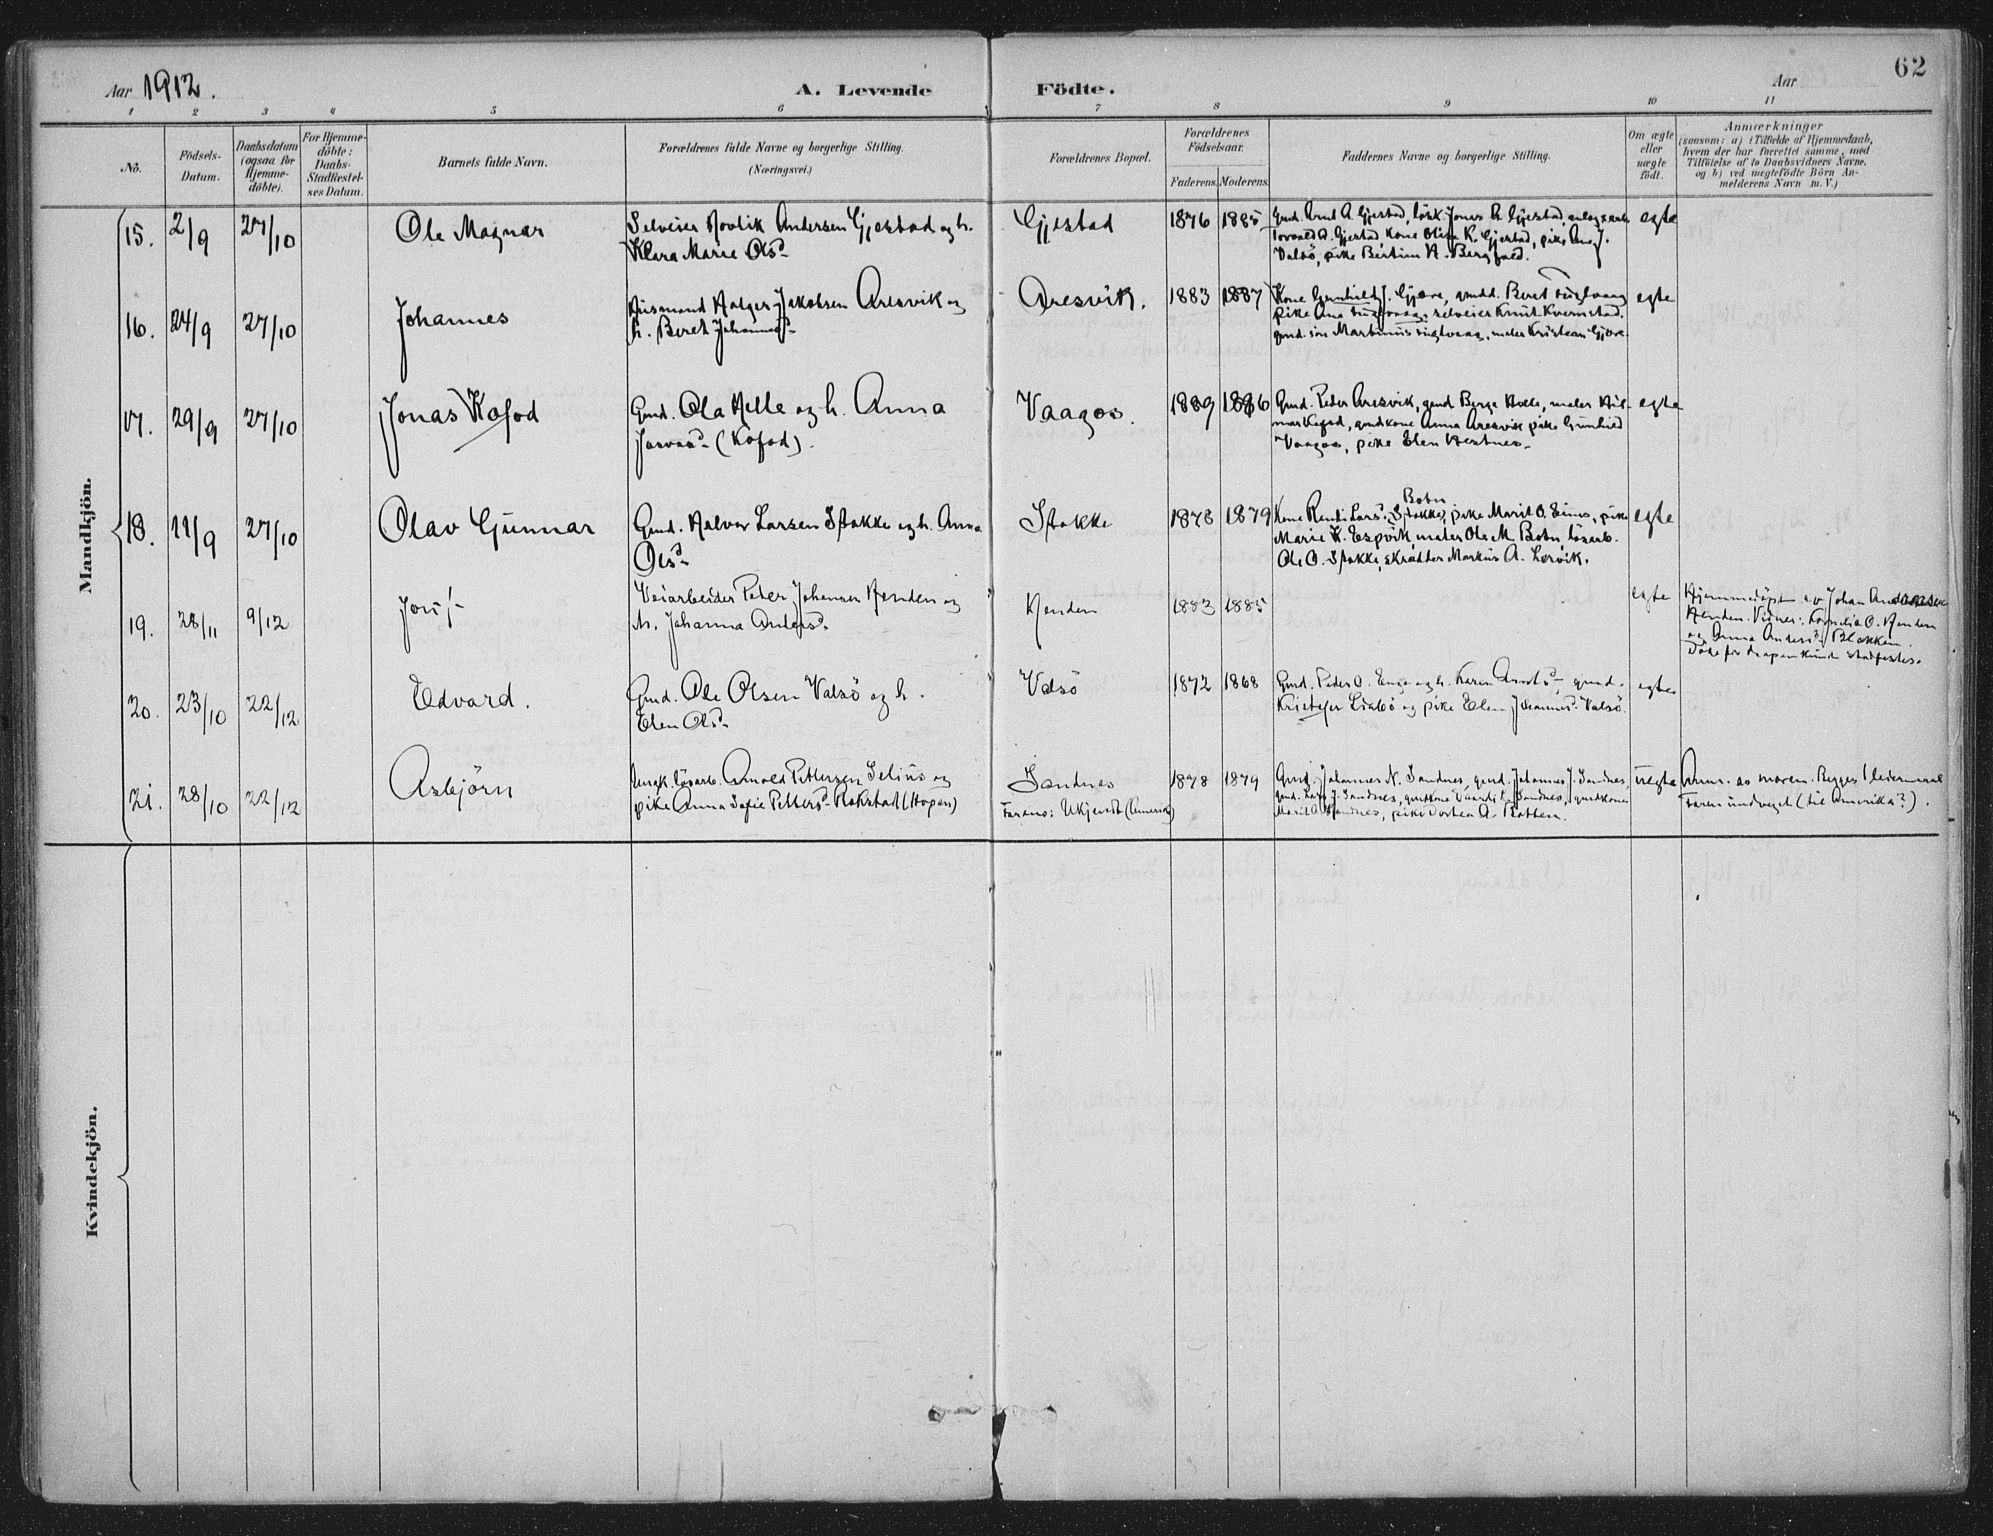 62
Aar 1912.
A. Levende Födte.
Aar
1 2 3 4 5 6 7 8 9 10 11
No.
Födsels-
Datum.
Daabsdatum
(ogsaa for
Hjemme-
döbte).
For Hjemme-
döbte:
Daabs-
Stadfæstel-
ses Datum.
Barnets fulde Navn.
Forældrenes fulde Navne og borgerlige Stilling.
(Næringsvei.)
Forældrenes Bopæl.
Forældrenes
Födselsaar.
Faderens. Moderens.
Faddernes Navne og borgerlige Stilling.
Om ægte
eller
uægte
födt.
Anmærkninger
(saasom: a) i Tilfælde af Hjemmedaab,
hvem der har forrettet samme, med
Tilföielse af to Daabsvidners Navne.
og b) ved uægtefödte Börn An-
melderens Navn m. V.)
Mandkjön.
15. 2/9 27/10 Ole Magnar
Selveier Andersen Gjestad og h.
Klara Marie Olsd.
Gjestad 1876 1885
Gmd. Arnt A. Gjestad, Jonas Gjestad,
Gjestad kone K. Gjestad, pike
Valsö, pike
egte
16. 24/9 27/10 Johannes
Husmand Holger Jakobsen Aresvik og
h. Beret Johannesd.
Aresvik. 1883 1887
Kone Gunhild J. Gjöre, Beret Fuglvaag
pike Ana Fuglvaag, selveier Knut Kvernstad,
gmd. sön Martinus Fuglvaag, maler Kristian Gjöre.
egte
17. 29/9 27/10 Jonas Kofod
Gmd. Ola Helle og h. Anna
(Kofod).
Vaagos. 1889 1886
Gmd. Peder Aresvik, gmd Berge Holle, maler Hil-
mar Kofod, gmdkone Anna Aresvik pike Gunhild
Vaagos, pike Elen Hestnes.
egte
18. 11/9 27/10 Olav Gunnar
Gmd. Halvor Larsen Stokke og h. Anna
Olsd.
Stokke 1878 1879
Botn
Kone Randi Larsd. Stokke, pike Marit O. pike
Marie K. Espvik maler Ole M. Botn lösarb.
Ole O. Stokke, skrädder Markus A. Lervik.
egte
19. 28/11 9/12
Veiarbeider Peter Johansen Henden og
h. Johanna Andersd.
Henden 1883 1885
egte
Hjemmedöpt av Johan Andersen
Henden. Vidner: Kornelia O. Henden
og Anna Andersd. Blekken.
Döde för daapen kunde stadfestes.
20. 23/10 22/12 Edvard.
Gmd. Ole Olsen Valsö og h.
Elen Olsd.
Valsö 1872 1868
Gmd. Peder O. Enge og h. Karen Arntsd., gmd.
Kristofer Liabö og pike Elen Johannesd. Valsö.
egte
21. 28/10 22/12 Asbjörn
Ungk. lösarb. Arnold Pettersen Selius og
pike Anna Sofie Pettersd. Rokstad (Hopen)
Sandnes
Farens: Ukjendt (Amerika)
1878 1879
Gmd. Johannes N. Sandnes, gmd. Johannes J. Sandnes,
gmd. Lars J. Sandnes, gmdkone Sandnes, gmdkone
Marit O. Sandnes, pike Dortea A. Botten.
uegte
Anm. av moren. Begges 1 leiermaal
Faren undveget (til Amerika?).
Kvindekjön.